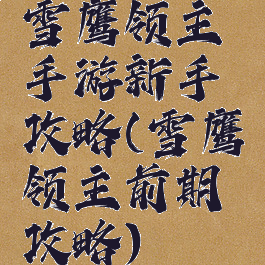 雪鹰领主
手游新手
攻略(雪鹰
领主前期
攻略)